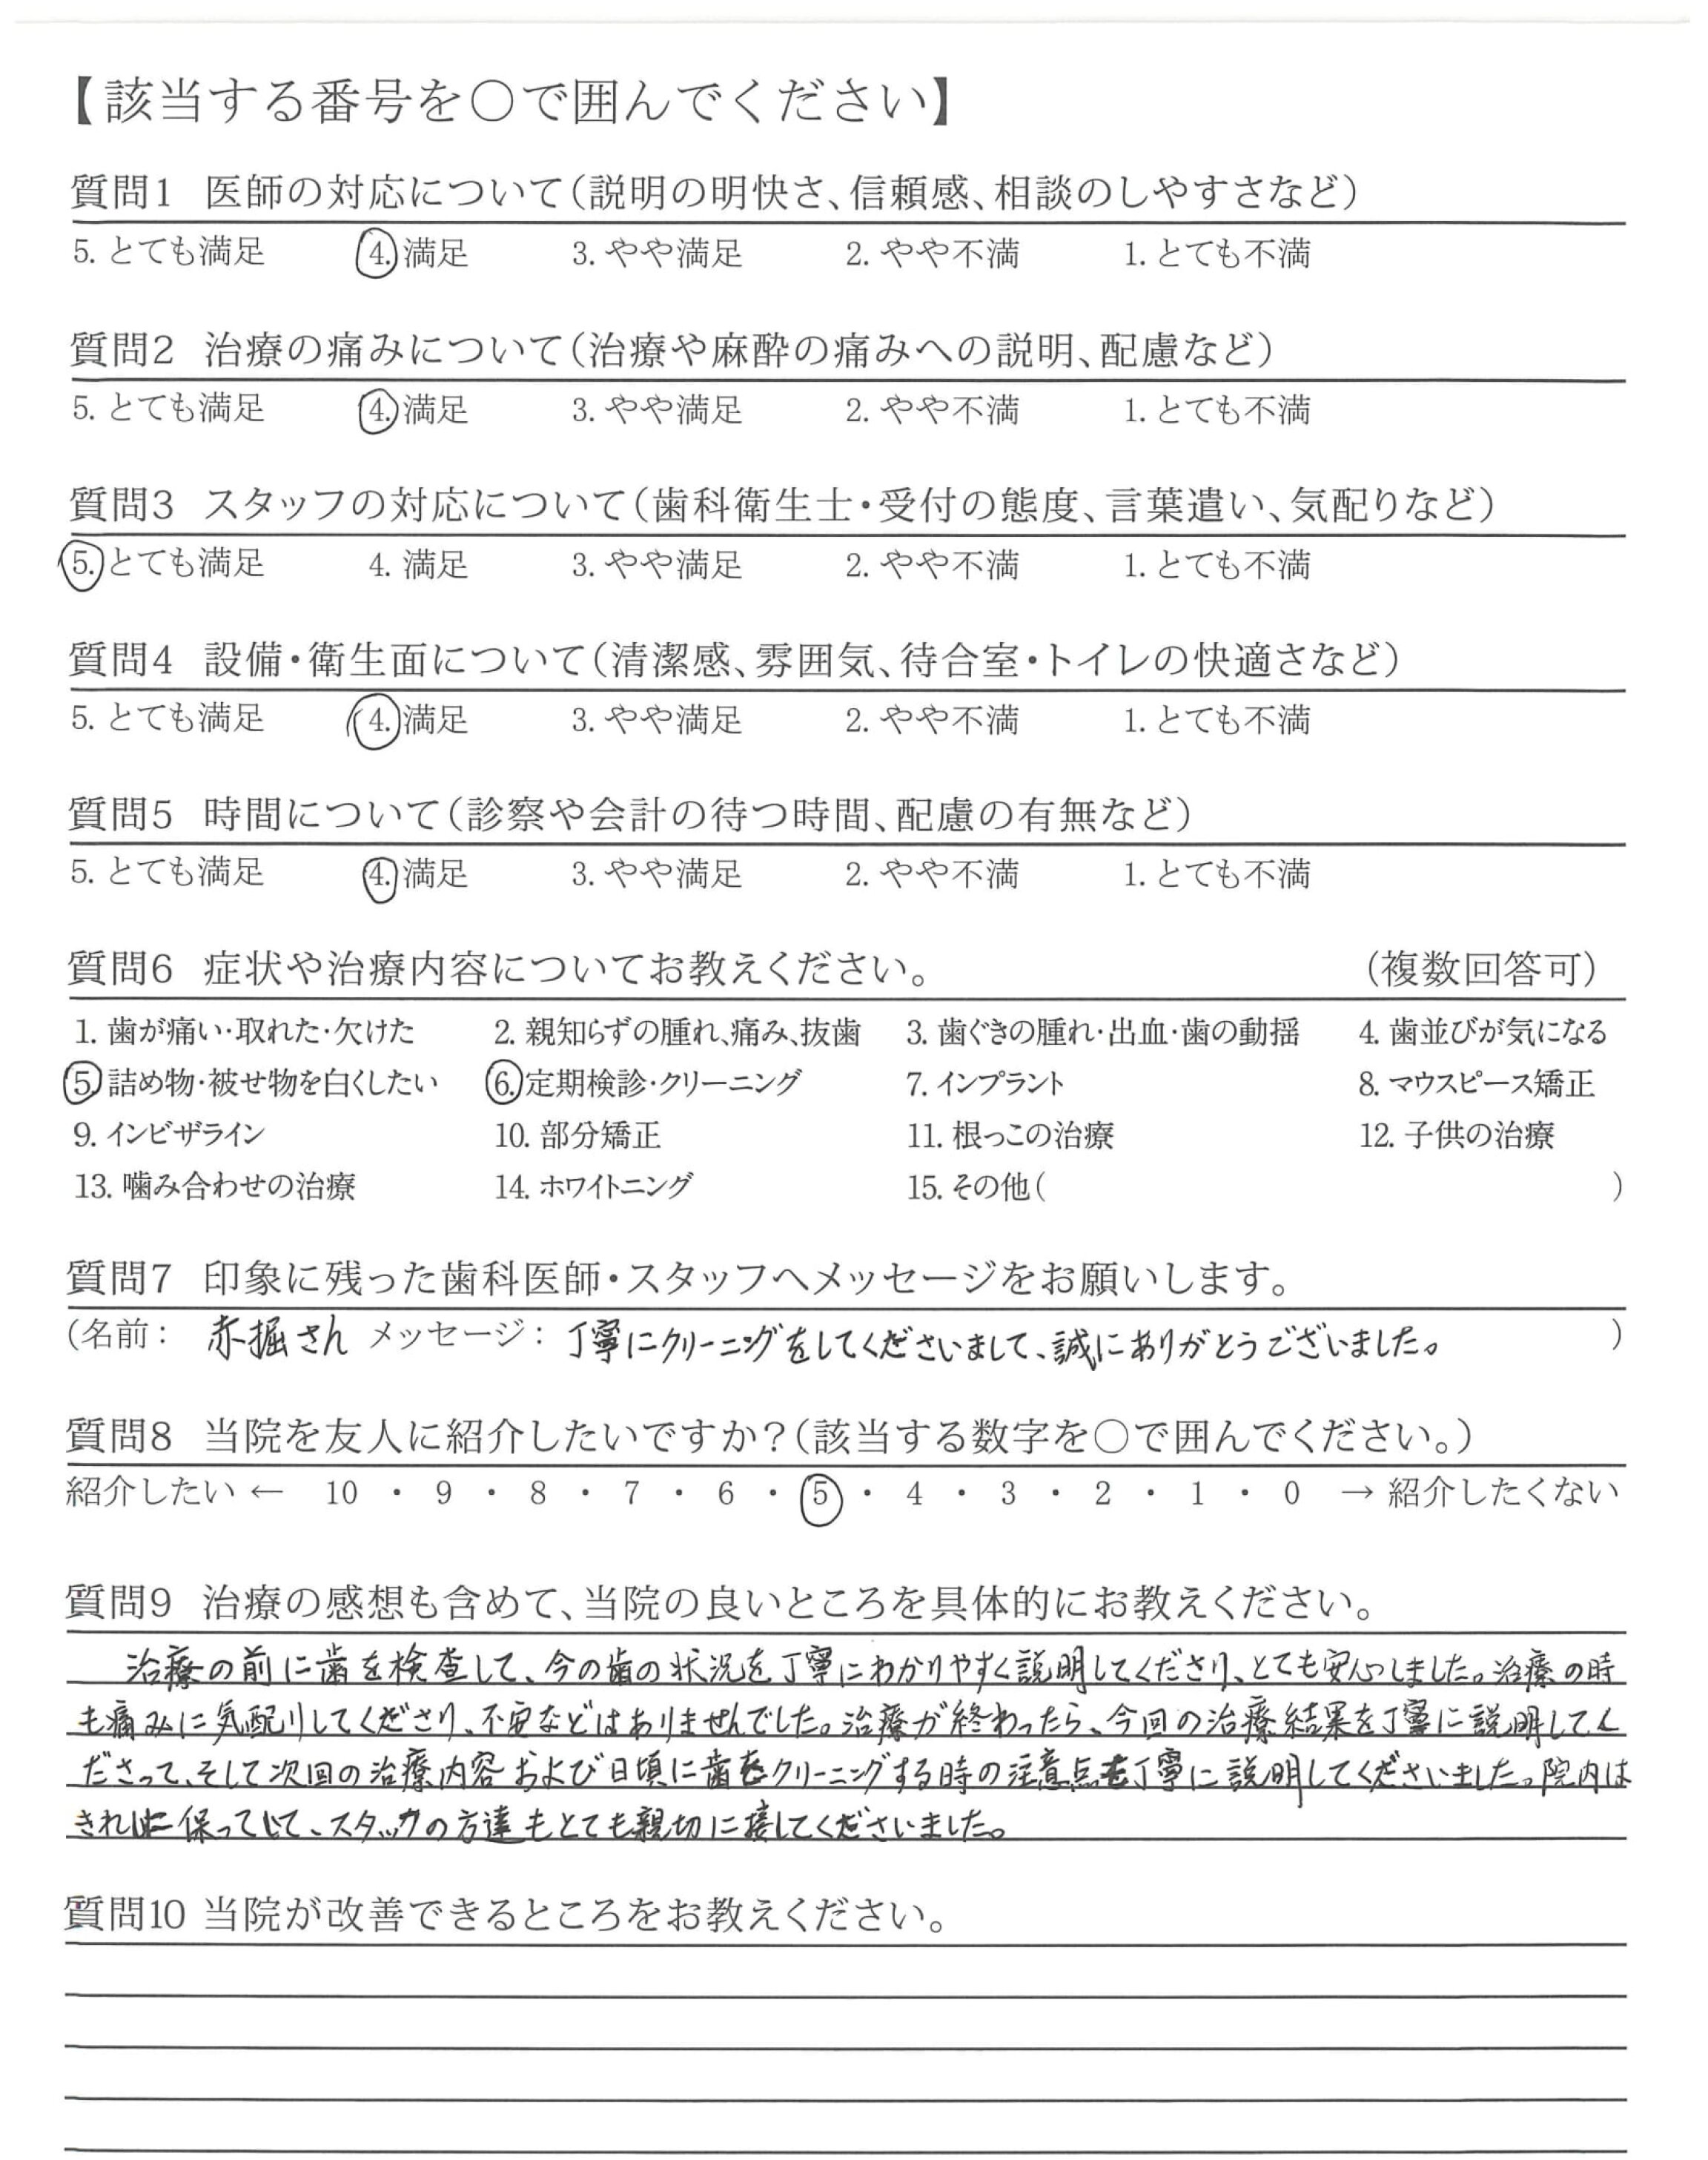 【該当する番号を○で囲んでください】
質問1 医師の対応について（説明の明快さ、信頼感、相談のしやすさなど）
5. とても満足 4. 満足 3. やや満足 2. やや不満 1. とても不満
質問2 治療の痛みについて（治療や麻酔の痛みへの説明、配慮など）
5. とても満足 4. 満足 3. やや満足 2. やや不満 1. とても不満
質問3 スタッフの対応について（歯科衛生士・受付の態度、言葉遣い、気配りなど）
5. とても満足 4. 満足 3. やや満足 2. やや不満 1. とても不満
質問4 設備・衛生面について（清潔感、雰囲気、待合室・トイレの快適さなど）
5. とても満足 4. 満足 3. やや満足 2. やや不満 1. とても不満
質問5 時間について（診察や会計の待つ時間、配慮の有無など）
5. とても満足 4. 満足 3. やや満足 2. やや不満 1. とても不満
質問6 症状や治療内容についてお教えください。 （複数回答可）
1. 歯が痛い・取れた・欠けた 2. 親知らずの腫れ、痛み、抜歯 3. 歯ぐきの腫れ・出血・歯の動揺 4. 歯並びが気になる
5. 詰め物・被せ物を白くしたい 6. 定期検診・クリーニング 7. インプラント 8. マウスピース矯正
9. インビザライン 10. 部分矯正 11. 根っこの治療 12. 子供の治療
13. 噛み合わせの治療 14. ホワイトニング 15. その他（ ）
質問7 印象に残った歯科医師・スタッフへメッセージをお願いします。
（名前： 赤堀さん メッセージ： 丁寧にクリーニングをしてくださいまして、誠にありがとうございました。 ）
質問8 当院を友人に紹介したいですか？（該当する数字を○で囲んでください。）
紹介したい ← 10 ・ 9 ・ 8 ・ 7 ・ 6 ・ 5 ・ 4 ・ 3 ・ 2 ・ 1 ・ 0 → 紹介したくない
質問9 治療の感想も含めて、当院の良いところを具体的にお教えください。
治療の前に歯を検査して、今の歯の状況を丁寧にわかりやすく説明してくださり、とても安心しました。治療の時
も痛みに気配りしてくださり、不安などはありませんでした。治療が終わったら、今回の治療結果を丁寧に説明してく
ださって、そして次回の治療内容および日頃に歯をクリーニングする時の注意点も丁寧に説明してくださいました。院内は
きれいに保っていて、スタッフの方達もとても親切に接してくださいました。
質問10 当院が改善できるところをお教えください。